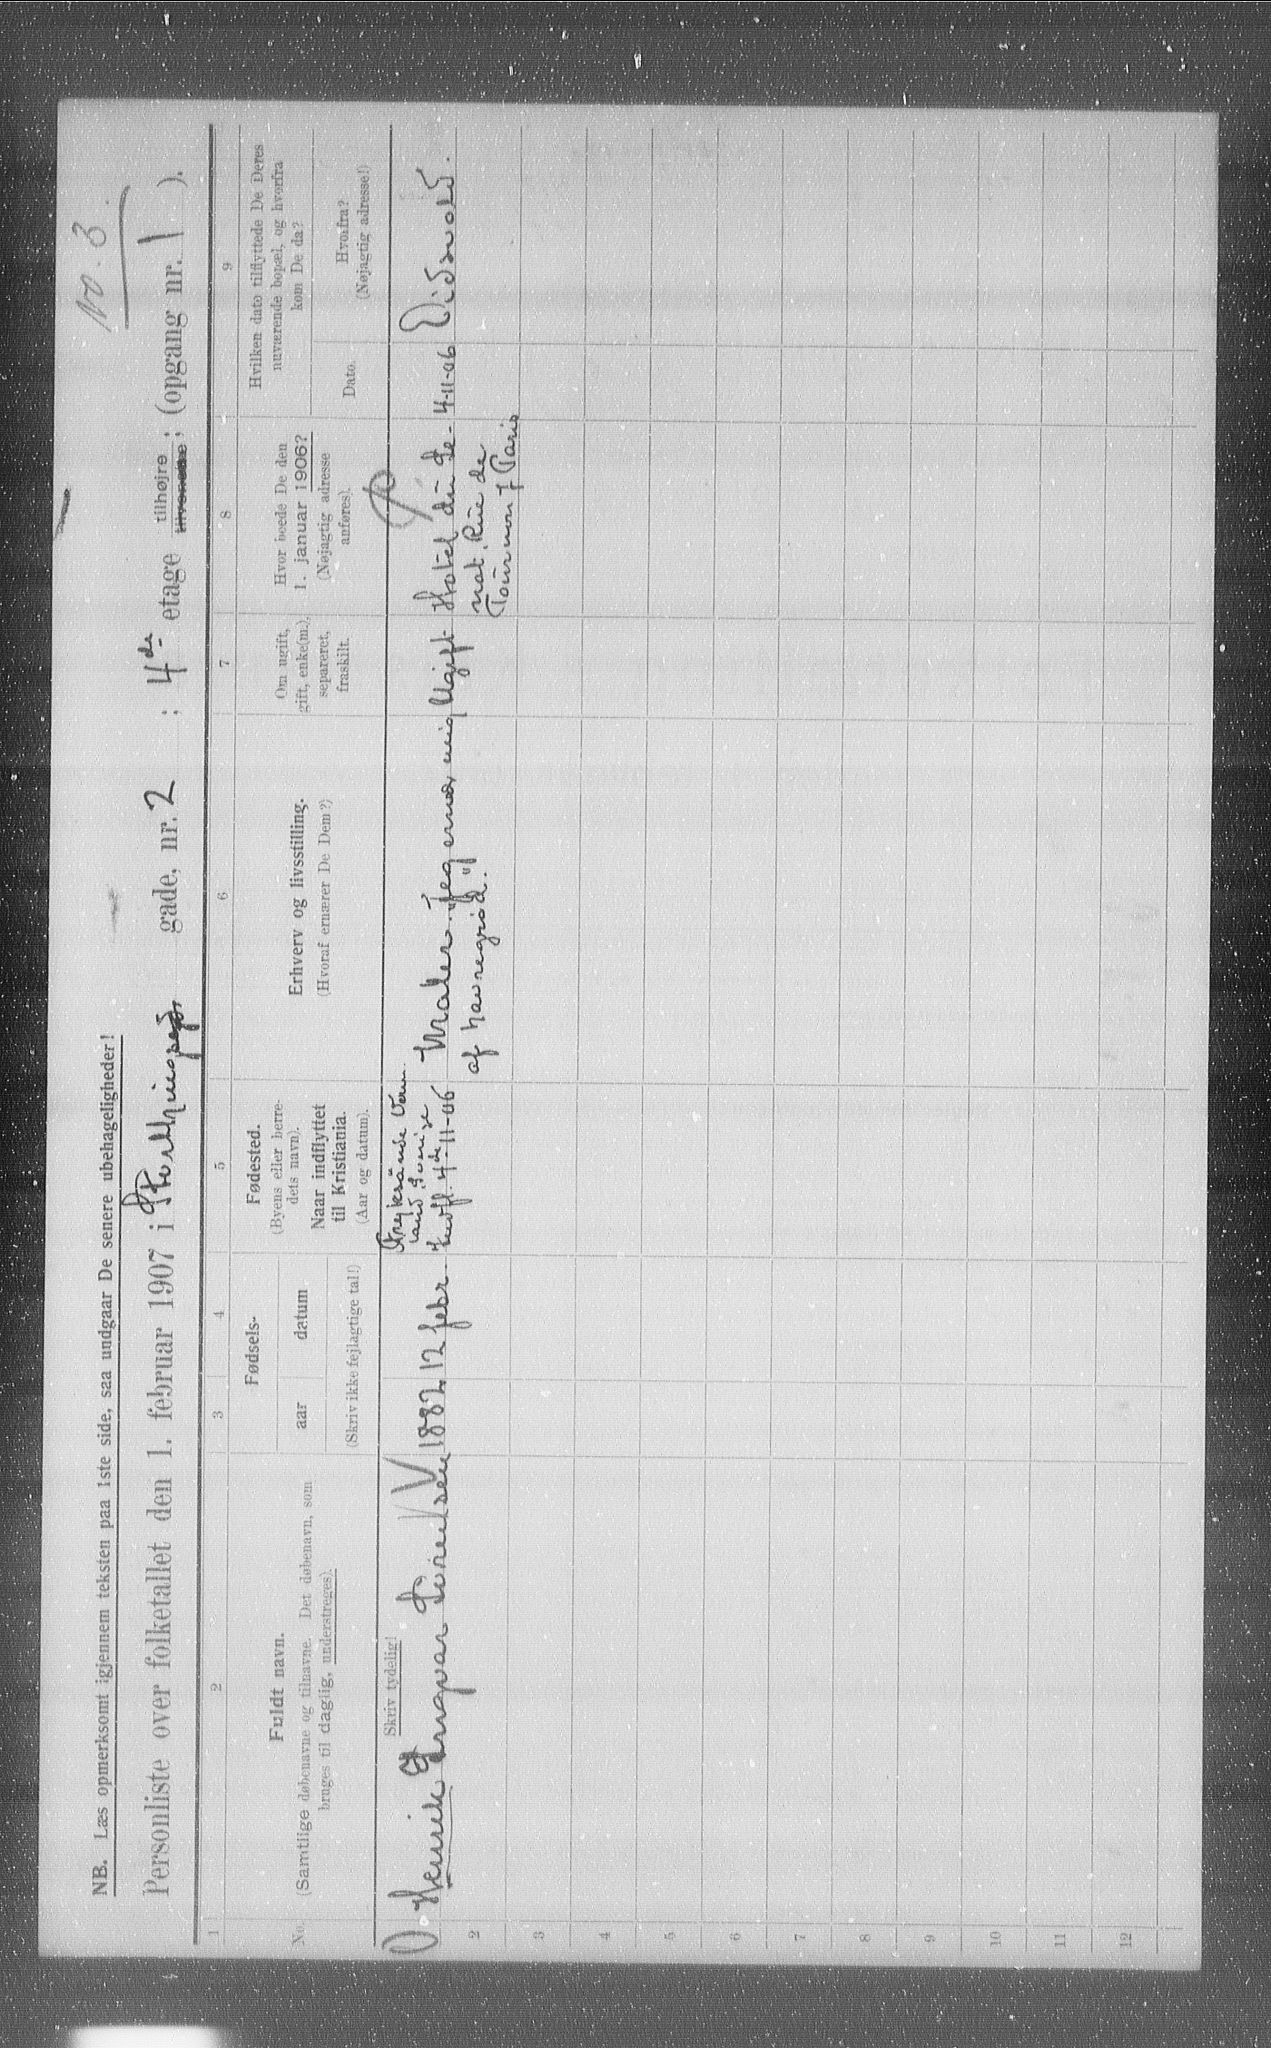 No. 3.
NB. Læs opmerksomt igjennem teksten paa 1ste side, saa undgaar De senere ubehageligheder!
Personliste over folketallet den 1. februar 1907 i Storthings gade, nr. 2 ; 4de etage tilhøjre tilvenstre ; (opgang nr. 1 ).
1 2 3 4 5 6 7 8 9
No.
Fuldt navn.
(Samtlige døbenavne og tilnavne. Det døbenavn, som
bruges til daglig, understreges).
Skriv tydelig!
Fødsels-
aar datum
(Skriv ikke fejlagtige tal!)
Fødested.
(Byens eller herre-
dets navn).
Naar indflyttet
til Kristiania.
(Aar og datum).
Erhverv og livsstilling.
(Hvoraf ernærer De Dem?)
Om ugift,
gift, enke(m.),
separeret,
fraskilt.
Hvor boede De den
1. januar 1906?
(Nøjagtig adresse
anføres).
Hvilken dato tilflyttede De Deres
nuværende bopæl, og hvorfra
kom De da?
Dato.
Hvorfra?
(Nøjagtig adresse!)
Henrik Ingvar Sørensen
1882 12 febr
Fryksände Verm
land. Sverige
Indfl. 4de-11-06
Maler. "Jeg ernær mig
af havregrød."
Ugift
Hotel du Se-
nat. Rue de
Tournon 7 Paris
4-11-06
Eidsvold.
2
3
4
5
6
7
8
9
10
11
12